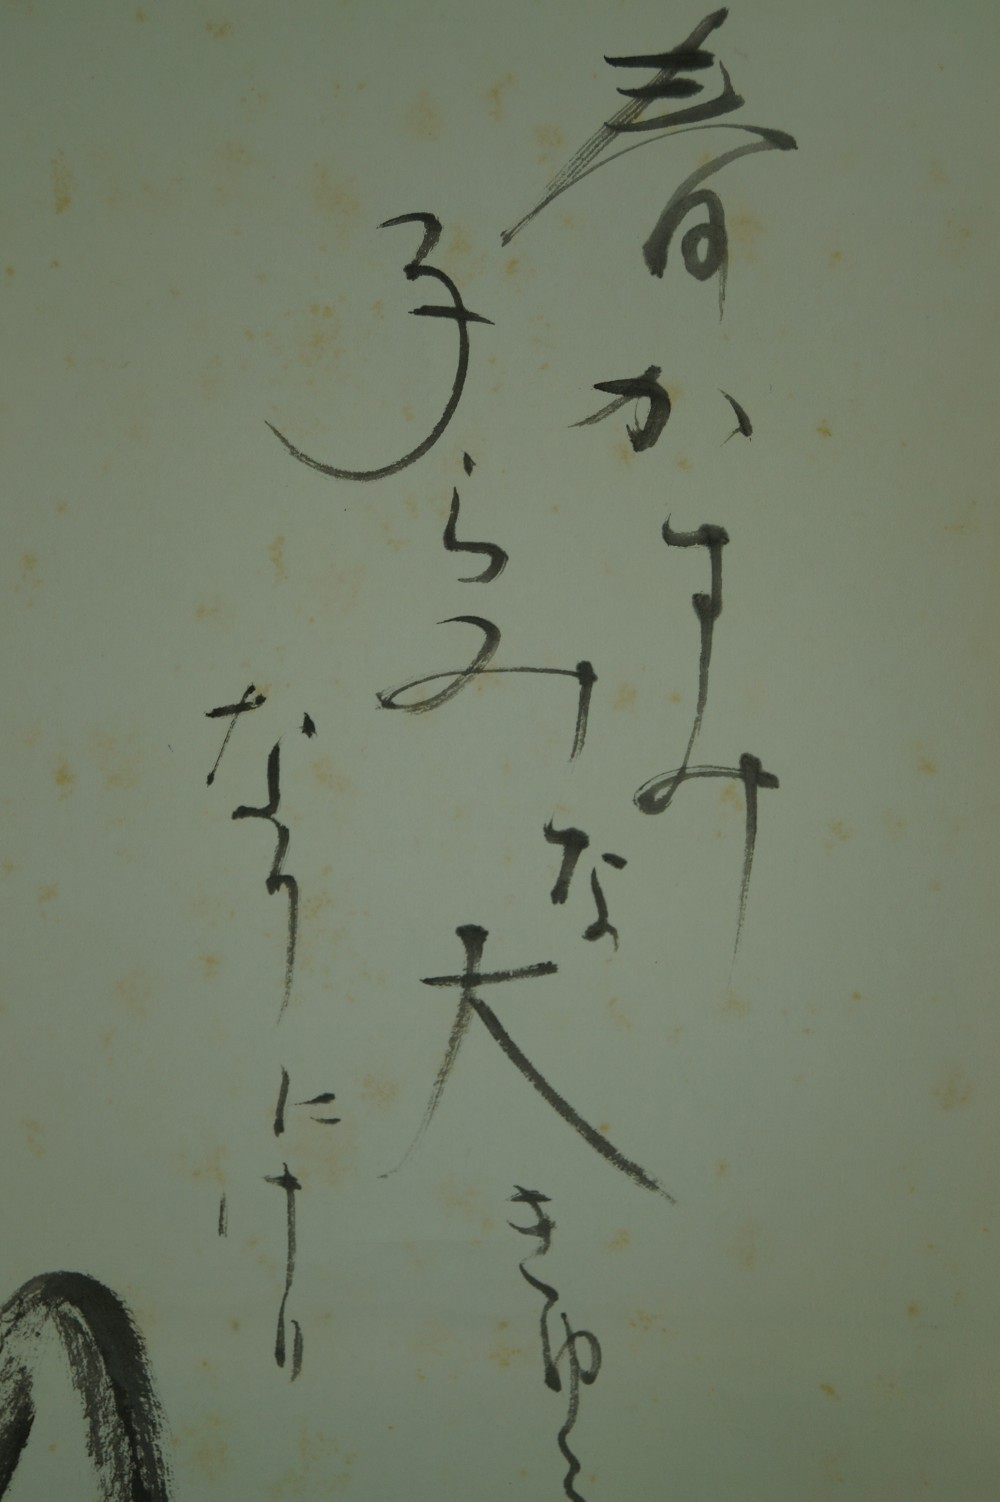 春かすみ
子らみな大きゆく
なりにけり